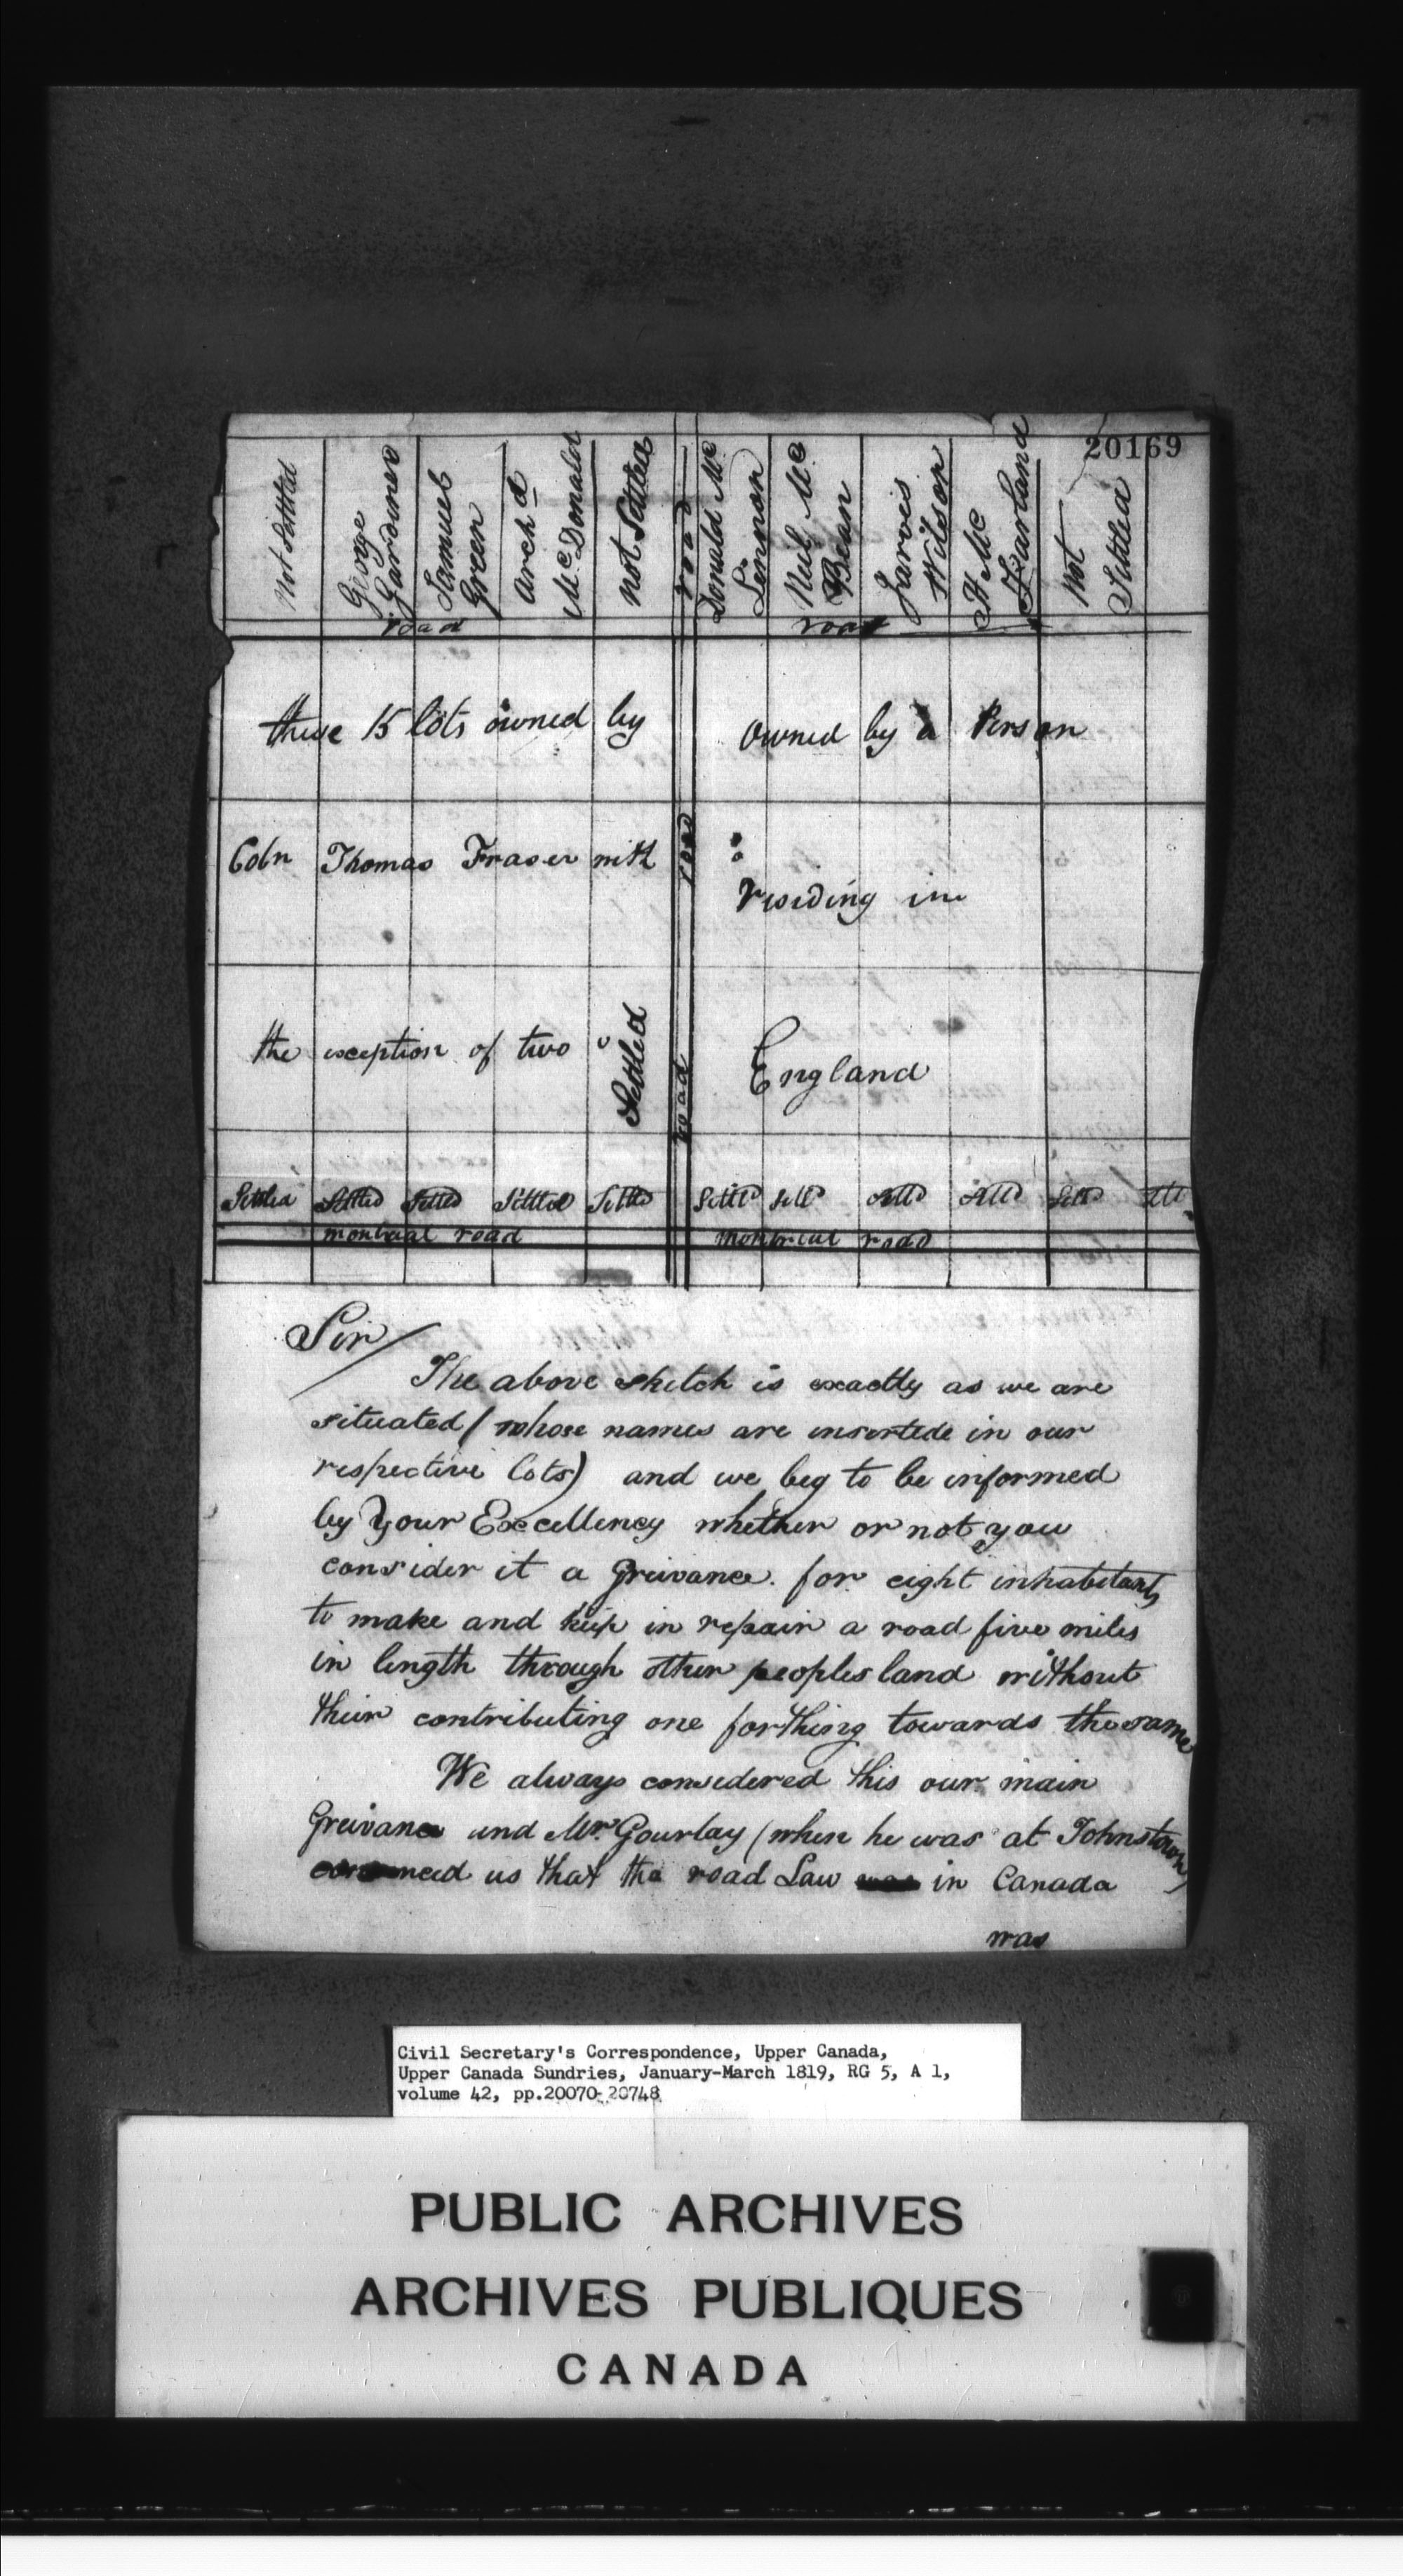 20169
Not Settled
George Gardiner
Samuel Green
Archd McDonald
not Settled
road
Donald Mc Lennon
Neil Mc Bean
Jarvis Wilson
H Mc Farland
Not Settled
road
road
these 15 lots owned by
owned by a Person
road
Coln Thomas Fraser with
residing in
the exception of two
Settled
road
England
Settled Settled Settled Settled Settled Settld Settd Settd Settd Settd Sett
montreal road
montreal road
Sir
The above sketch is exactly as we are
situated (whose names are insertede in our
respective lots) and we beg to be informed
by Your Excellency whether or not you
consider it a Greivance. for eight inhabitants
to make and keep in repair a road five miles
in length through other peoples land without
their contributing one forthing towards the same
We always considered this our main
Greivance and Mr. Gourlay (when he was at Johnstown)
us that the road Law in Canada
was
Civil Secretary's Correspondence, Upper Canada,
Upper Canada Sundries, January-March 1819, RG 5, A 1,
volume 42, pp.20070-20748
PUBLIC ARCHIVES
ARCHIVES PUBLIQUES
CANADA